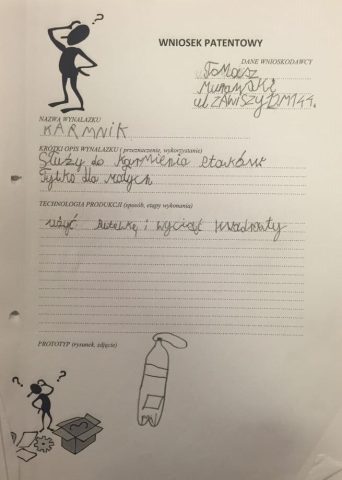 WNIOSEK PATENTOWY
DANE WNIOSKODAWCY
Tomasz
Murawski
ul. ZAWISZY DM144.
NAZWA WYNALAZKU
KARMNIK
KRÓTKI OPIS WYNALAZKU ( przeznaczenie, wykorzystanie)
Służy do karmienia ptaków
Tylko dla małych
TECHNOLOGIA PRODUKCJI (sposób, etapy wykonania)
użyć butelkę i wyciąć kwadraty
PROTOTYP (rysunek, zdjęcie)